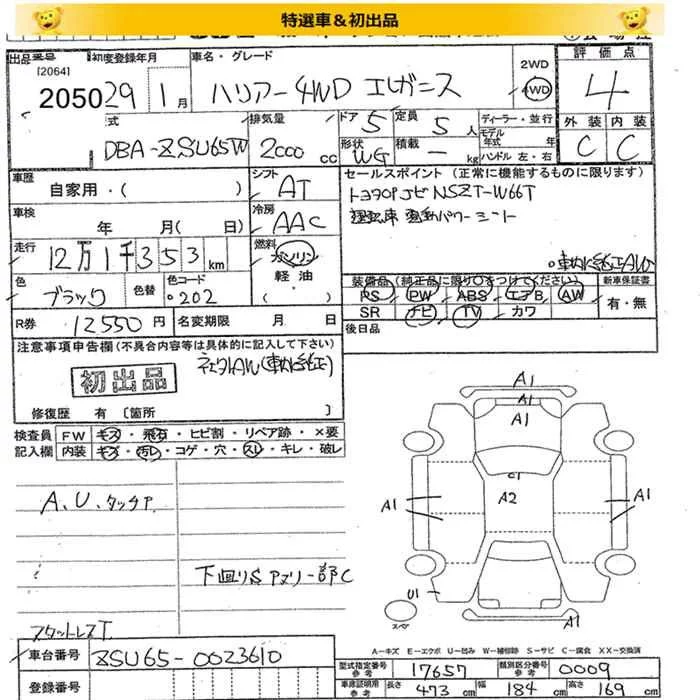 特選車&初出品
出品番号
[2064]
2050
初度登録年月
29年 1月
車名・グレード
ハリアー 4WD エレガンス
2WD
4WD
評価点
4
型式
DBA-ZSU65W
排気量
2000 cc
ドア 5
形状 WG
定員 5 人
積載 — kg
ディーラー・並行
モデル年式 年
ハンドル 左・右
外装 内装
C C
車歴
自家用・( )
シフト
AT
セールスポイント (正常に機能するものに限ります)
トヨタOPナビ NSZT-W66T
運転席 電動パワーシート
車検
年 月( 日)
冷房
AAC
走行
12万1千353 km
燃料
ガソリン
軽油
・( )
。車内純正AW
色
ブラック
色替
色コード
。202
装備品 (純正品に限り○をつけてください)
PS PW ABS エアB AW
SR ナビ TV カワ
新車保証書
有・無
R券
12550 円
名変期限 月 日
後日品
注意事項申告欄 (不具合内容等は具体的に記入して下さい)
初出品
社外AW(車内純正)
修復歴 有 [箇所 ]
検査員 FW キズ・飛石・ヒビ割・リペア跡・×要
記入欄 内装 キズ・汚レ・コゲ・穴・スレ・キレ・破レ
A1
A1
A1
C1
A2
A1
A1
A.U.タッチP
下回りS アマリー部C
U1
スペア
A1
スタットレスT
A-キズ E-エクボ U-凹み W-補修跡 S-サビ C-腐食 XX-交換済
車台番号
ZSU65-0023610
型式指定番号 参考
17657
類別区分番号 参考
0009
登録番号
車庫証明用 参考
長さ 473 cm
幅 184 cm
高さ 169 cm